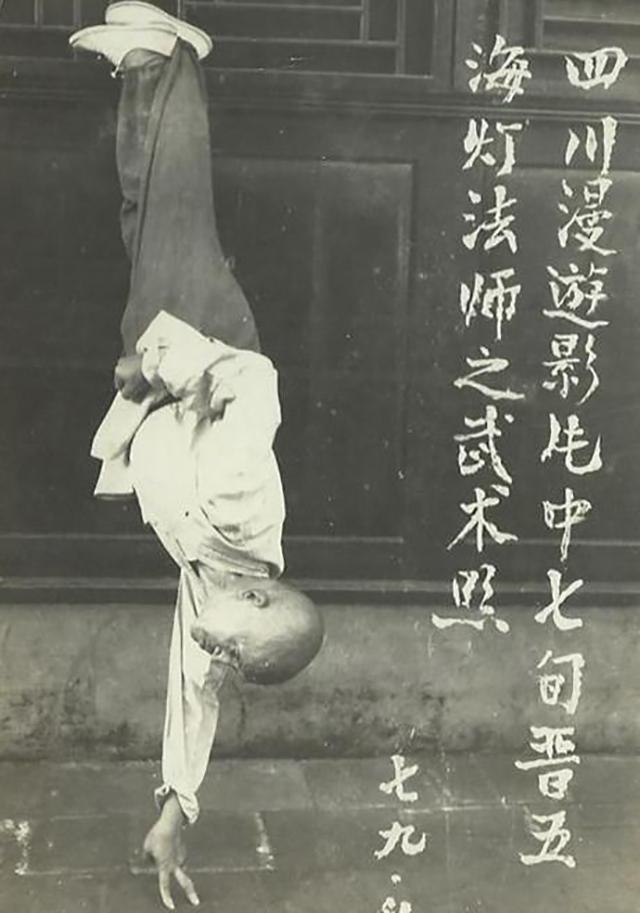 四川漫遊影片中七旬晋五
海灯法师之武术照
七九·